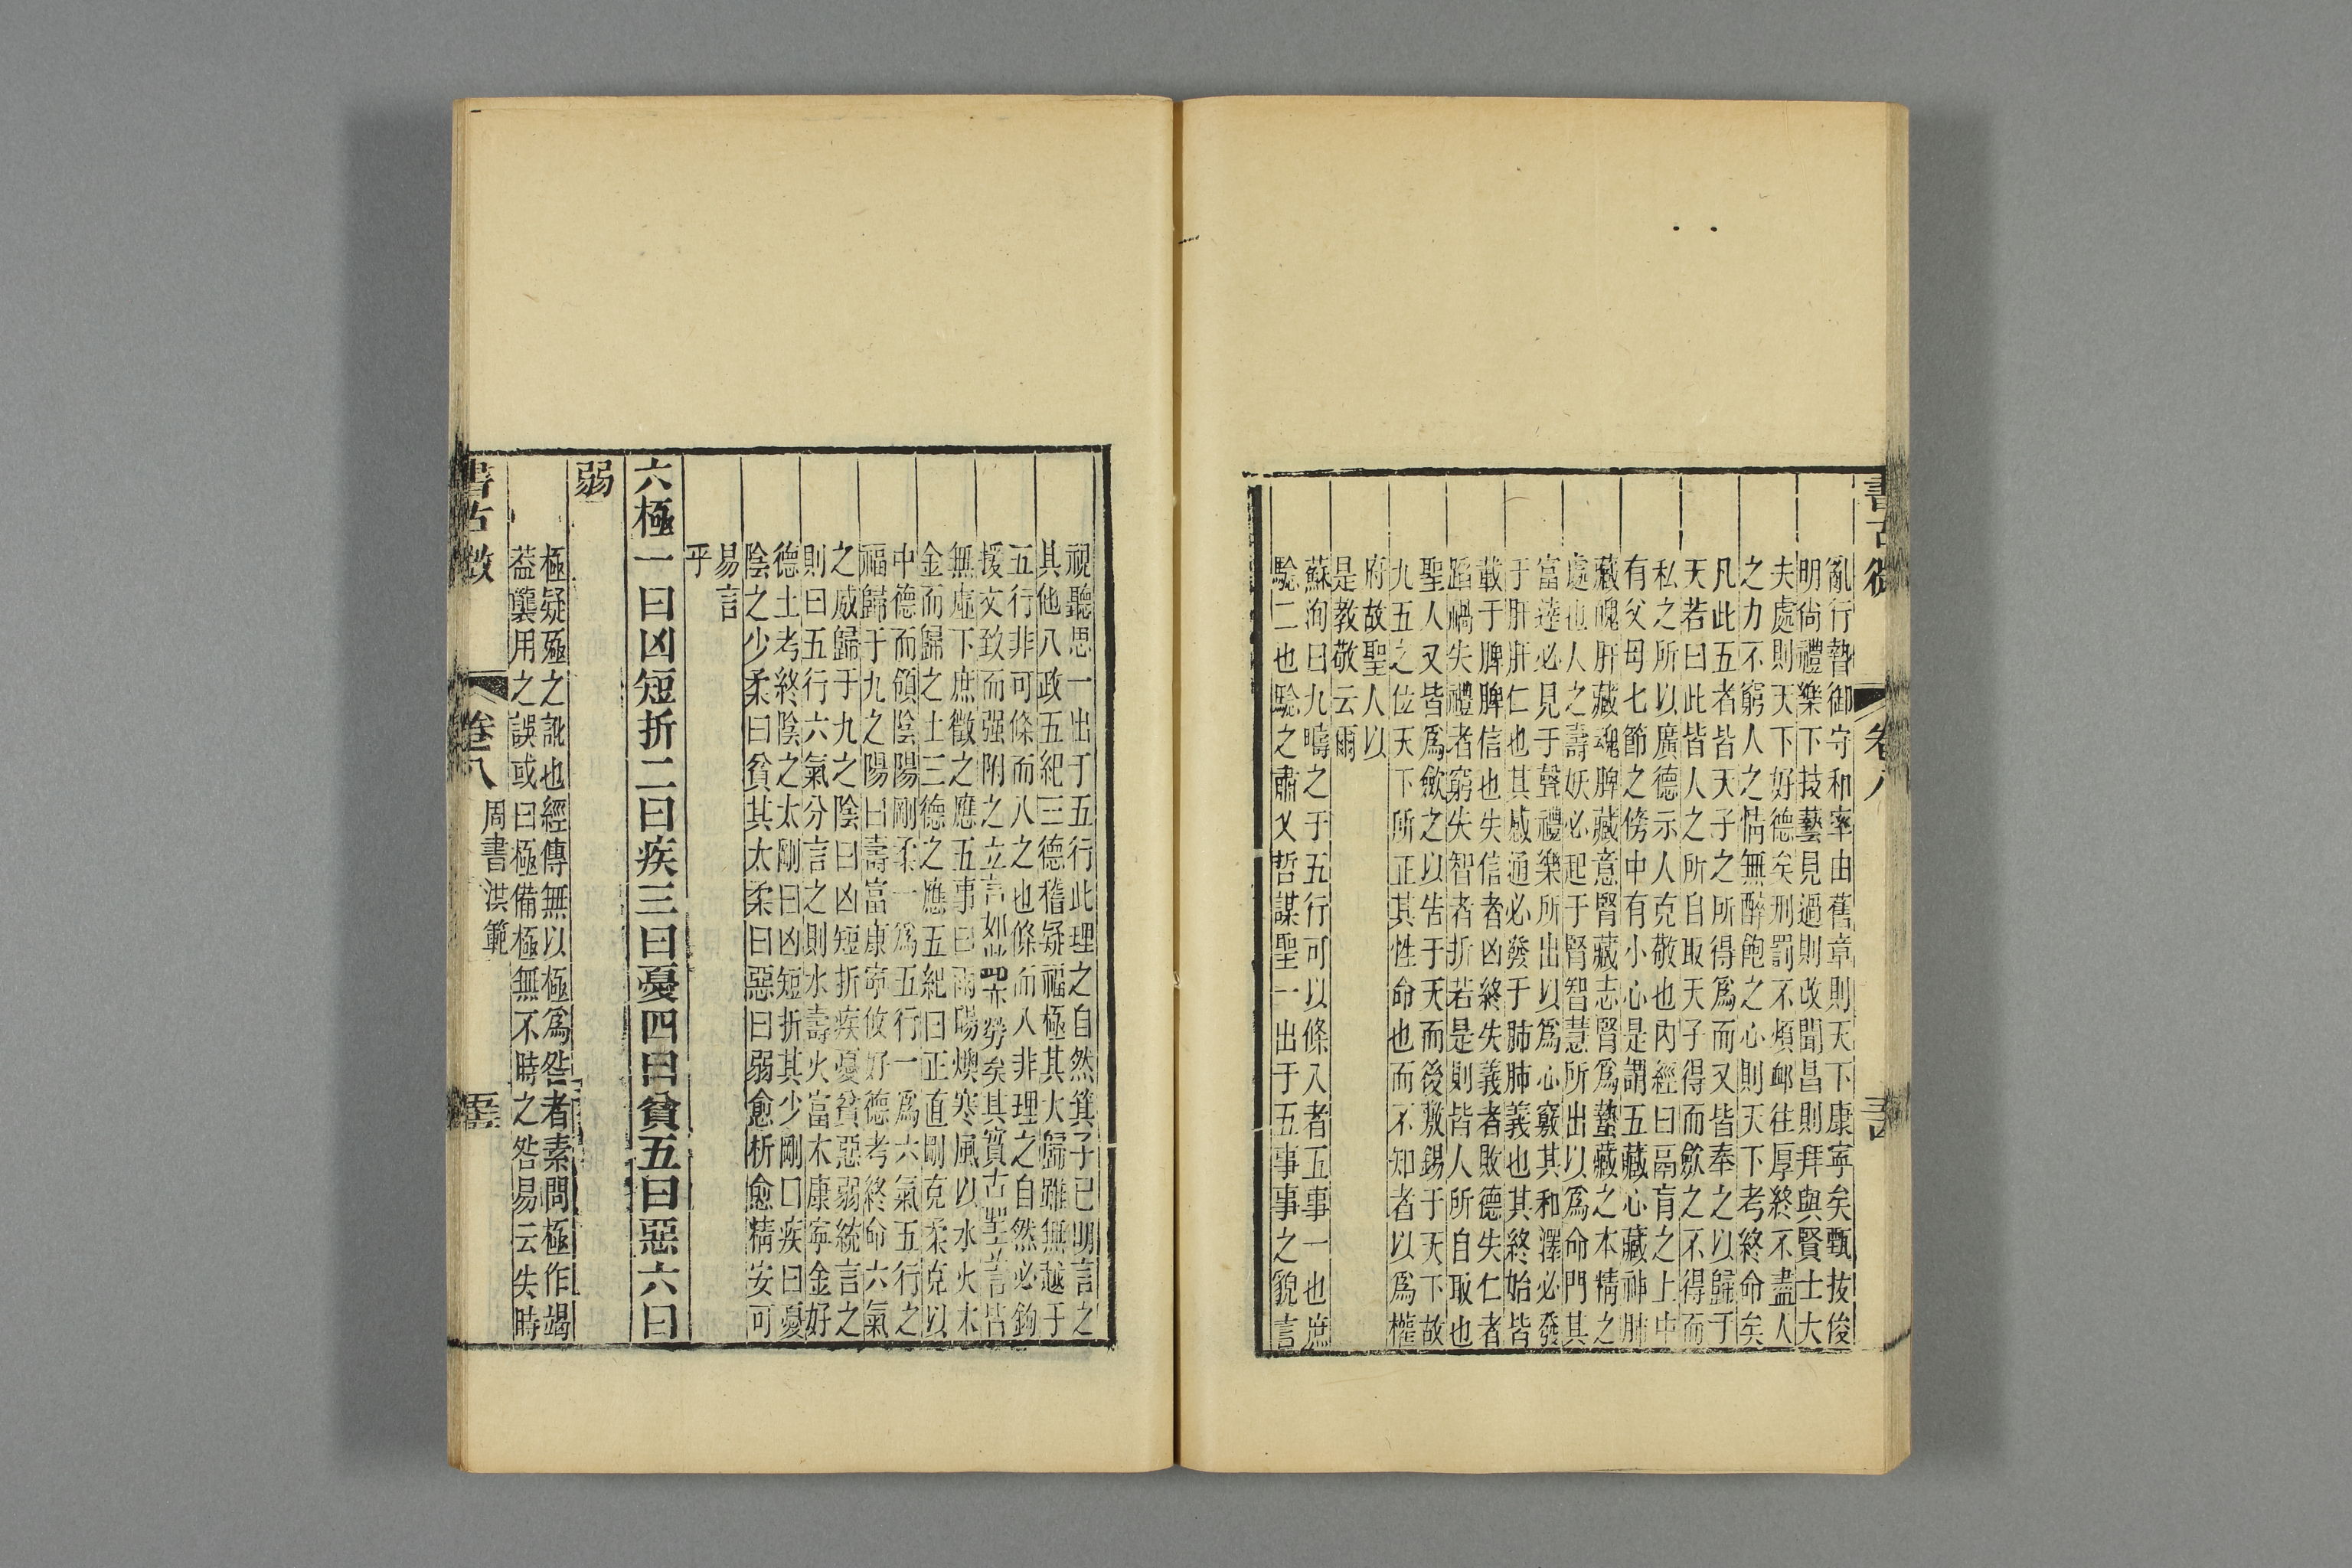 書古微
卷八
亂行贄御守和率由舊章則天下康寧矣甄技俊
明尚禮樂下技藝見過則改聞昌則拜與賢士大
夫處則天下好德矣刑罰不煩邮往厚終不盡人
之力不窮人之情無醉飽之心則天下考終命矣
凡此五者皆天子之所得爲而又皆奉之以歸于
天若曰此皆人之所自取天子得而斂之不得而
私之所以廣德示人克敬也內經曰鬲肓之上中
有父母七節之傍中有小心是謂五藏心藏神肺
藏魄肝藏魂脾藏意腎藏志腎爲蟄藏之本精之
處也人之壽妖必起于腎智慧所出以爲命門其
富逹必見于聲禮樂所出以爲心竅其和澤必發
于肝肝仁也其感通必發于肺肺義也其終始皆
載于脾脾信也失信者凶終失義者敗德失仁者
蹈禍失禮者窮失智者折若是則皆人所自取也
聖人又皆爲斂之以告于天而後敷錫于天下故
九五之位天下所正其性命也而不知者以爲權
府故聖人以
是教敬云爾
蘇洵曰九疇之于五行可以條入者五事一也庶
驗二也驗之肅乂哲謀聖一出于五事事之貌言
視聽思一出于五行此理之自然箕子已明言之
其他八政五紀三德稽疑福極其大歸雖無越于
五行非可條而八之也條而八非理之自然必鉤
援文致而强附之立言如此亦勞矣其實古聖言皆
無虛下庶徵之應五事曰雨暘燠寒風以水火木
金而歸之土三德之應五紀曰正直剛克柔克以
中德而領陰陽剛柔一爲五行一爲六氣五行之
福歸于九之陽曰壽富康寧攸好德考終命六氣
之威歸于九之陰曰凶短折疾憂貧惡弱統言之
則曰五行六氣分言之則水壽火富木康寧金好
德土考終陰之太剛曰凶短折其少剛曰疾曰憂
陰之少柔曰貧其太柔曰惡曰弱愈析愈精安可
易言
乎
六極一曰凶短折二曰疾三曰憂四曰貧五曰惡六曰
弱
極疑殛之訛也經傳無以極爲咎者素問極作竭
葢襲用之誤或曰極備極無不時之咎易云失時
書古微
卷八
周書洪範